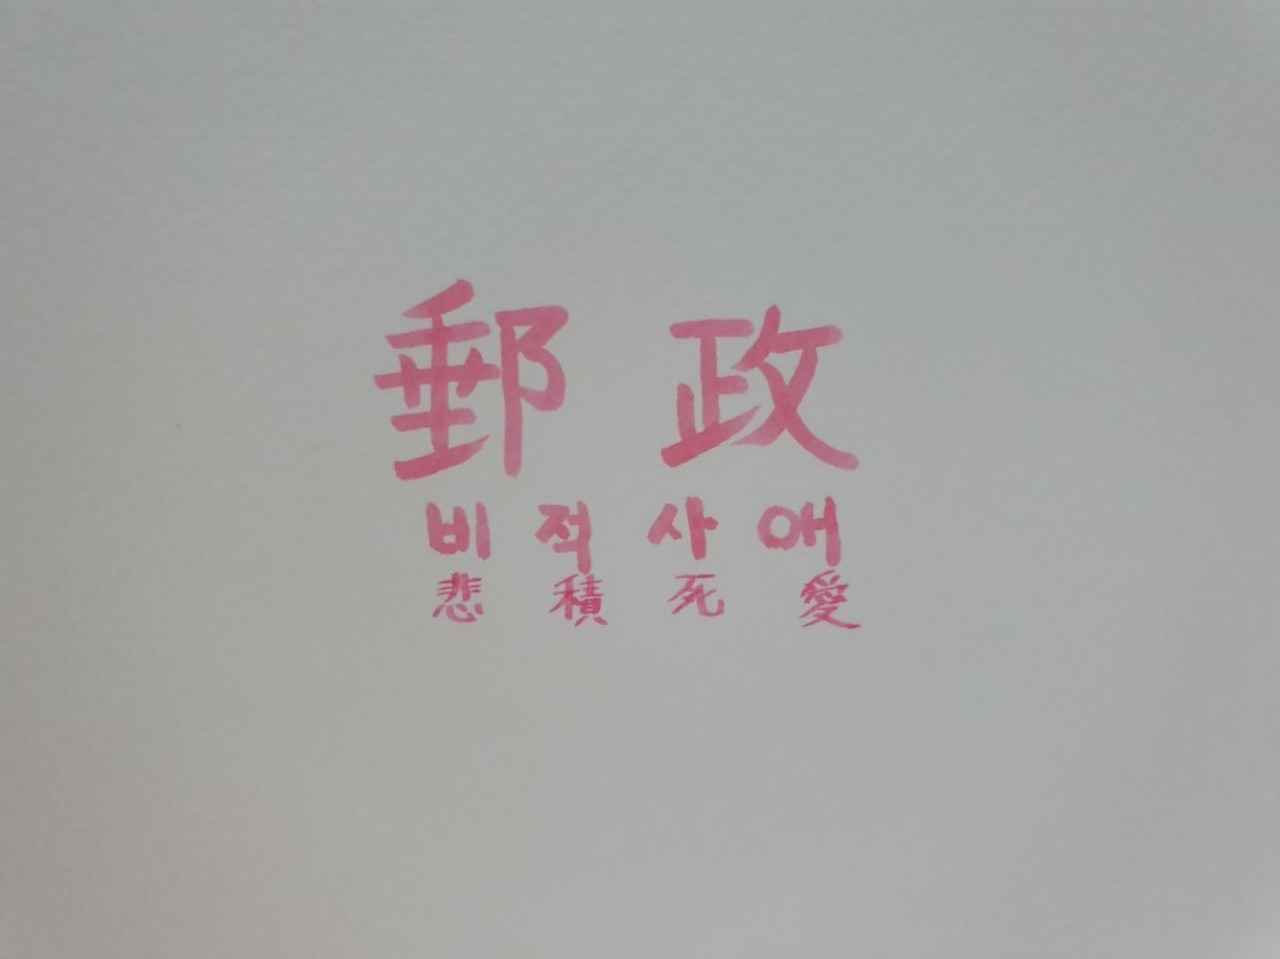 郵政
비적사애
悲積死愛